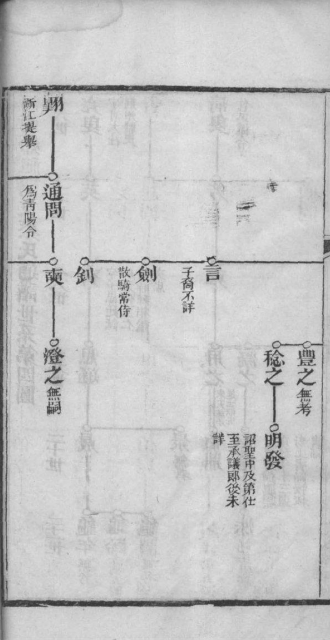 豐之 無考
稔之
明發
詔聖中及第仕
至承議郎後未
詳
言
子裔不詳
劍
散騎常侍
釗
奭
澄之 無嗣
通問
為青陽令
翔
浙江提舉